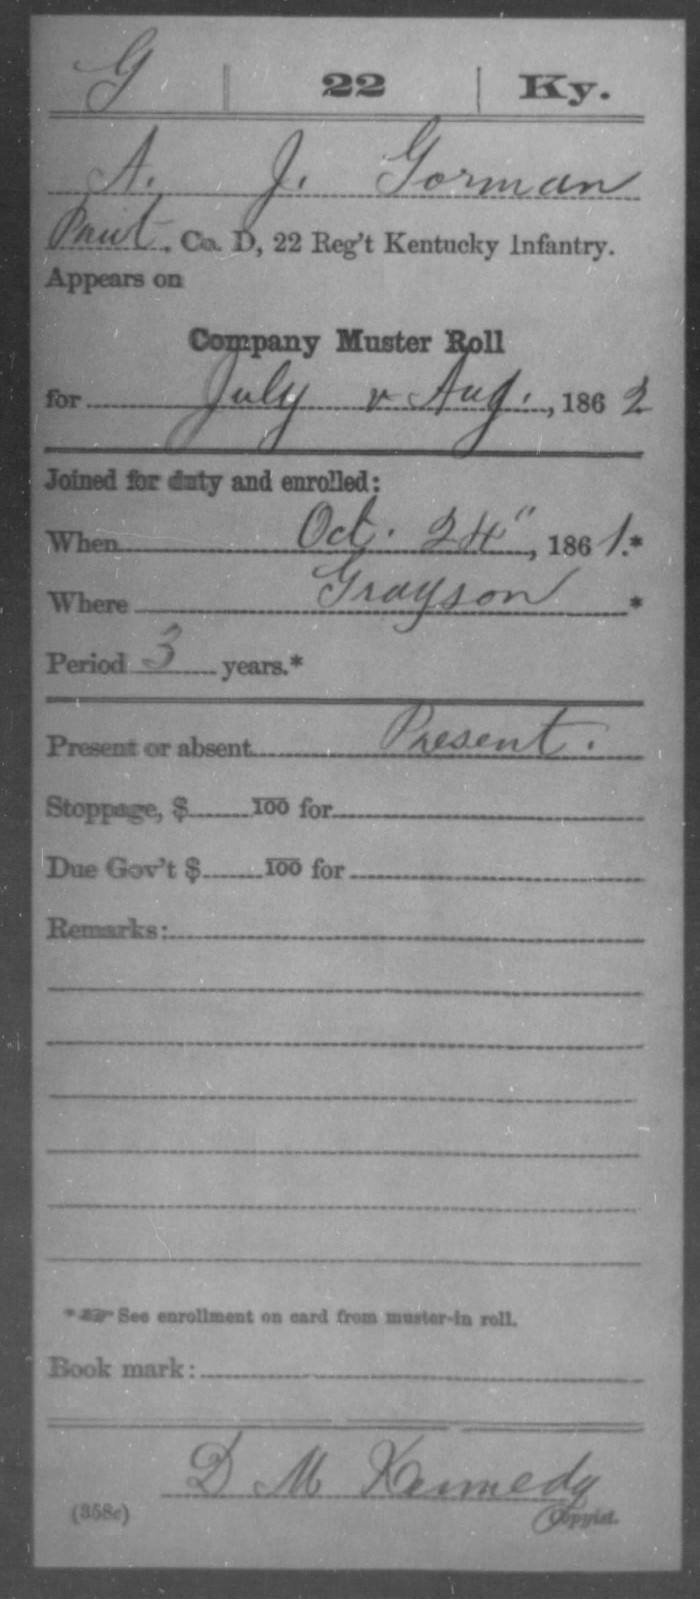 G | 22 | Ky.
A. J. Gorman
Pvt., Co. D, 22 Reg't Kentucky Infantry.
Appears on
Company Muster Roll
for July & Aug., 1862
Joined for duty and enrolled:
When Oct. 24", 1861.*
Where Grayson *
Period 3 years.*
Present or absent Present.
Stoppage, $ 100 for
Due Gov't $ 100 for
Remarks:
* See enrollment on card from muster-in roll.
Book mark:
D M Kennedy
(358c) Copyist.